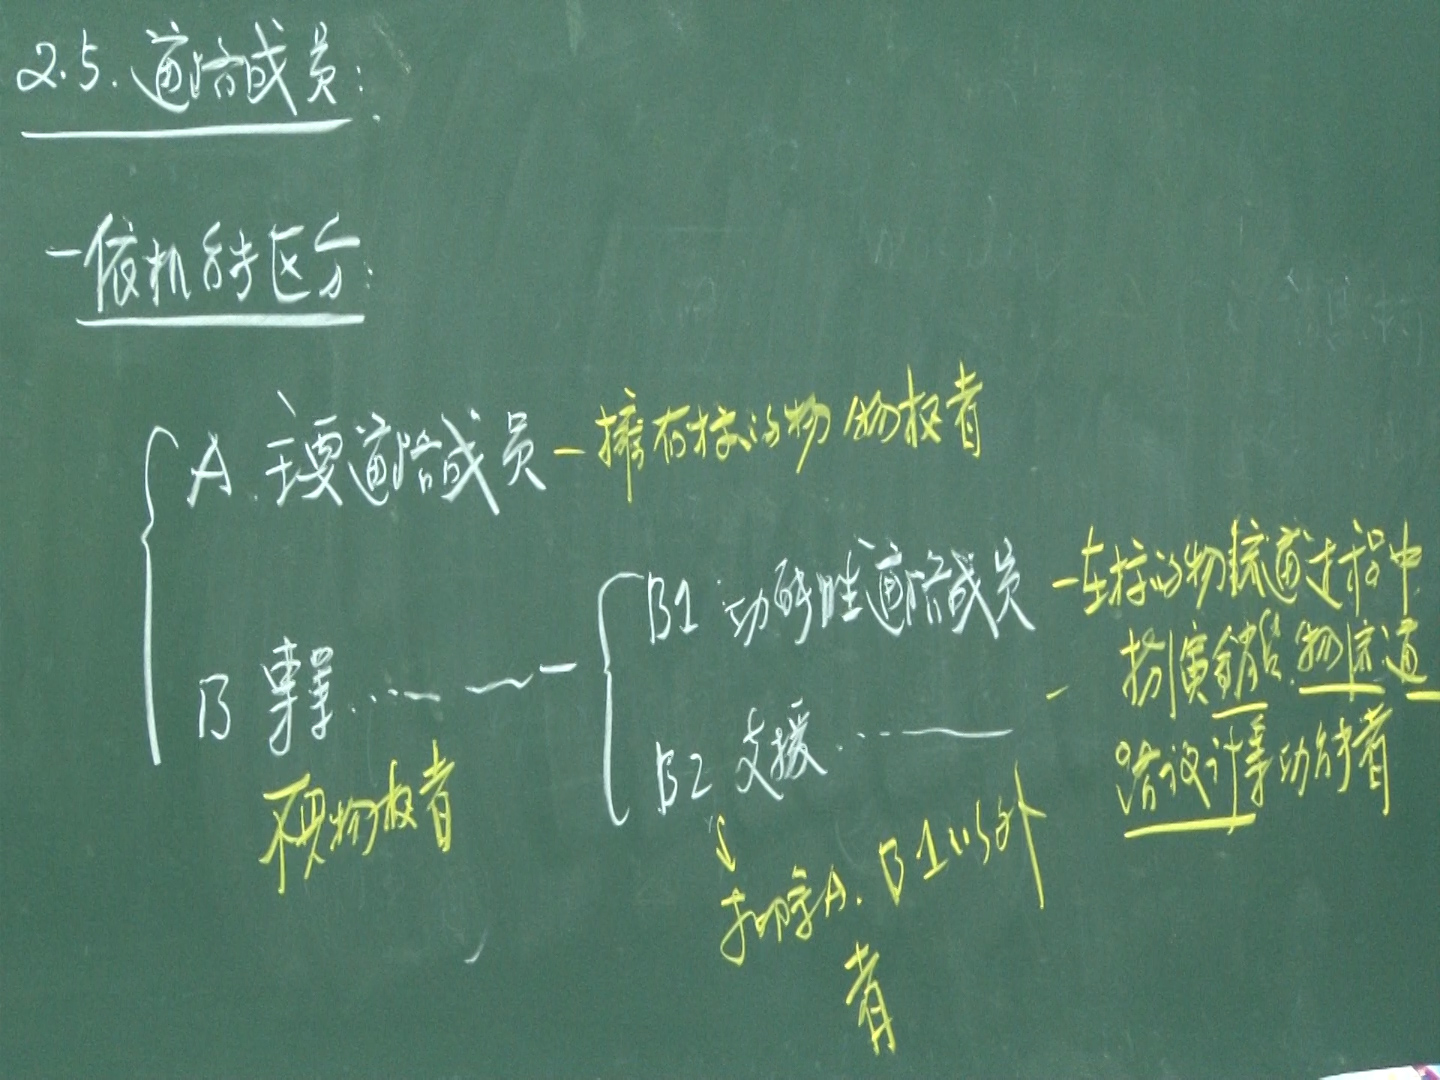 2.5. 通路成員:
-依机能区分:
A. 主要通路成員 - 擁有标的物物权者
B 專業…
不具物权者
B1 功能性通路成員 - 在标的物流通过程中
扮演銷售.物流.通
路设计等功能者
B2 支援…
↓
扣除A. B1以外
者